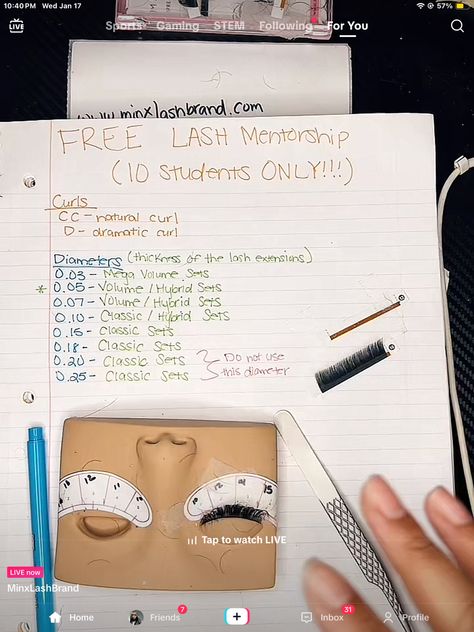 10:40 PM Wed Jan 17
57%
LIVE
Sports Gaming STEM Following For You
www.minxlashbrand.com
FREE LASH Mentorship
(10 Students ONLY!!!)
Curls
CC - natural curl
D - dramatic curl
Diameters (thickness of the lash extensions)
0.03 - Mega Volume Sets
* 0.05 - Volume / Hybrid Sets
0.07 - Volume / Hybrid Sets
0.10 - Classic / Hybrid Sets
0.15 - Classic Sets
0.18 - Classic Sets
0.20 - Classic Sets
0.25 - Classic Sets
Do not use
this diameter
Tap to watch LIVE
LIVE now
MinxLashBrand
Home
Friends 7
Inbox 31
Profile